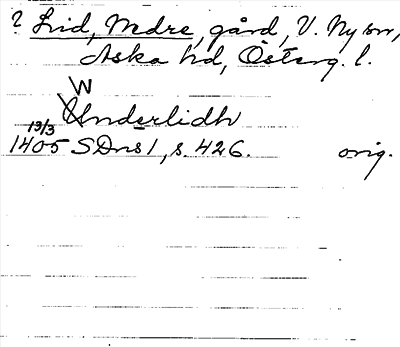 ? Lid, Nedre, gård, V. Ny sn,
Aska hd, Österg. l.
W
Underlidh
13/3
1405 SDns 1, s. 426. orig.